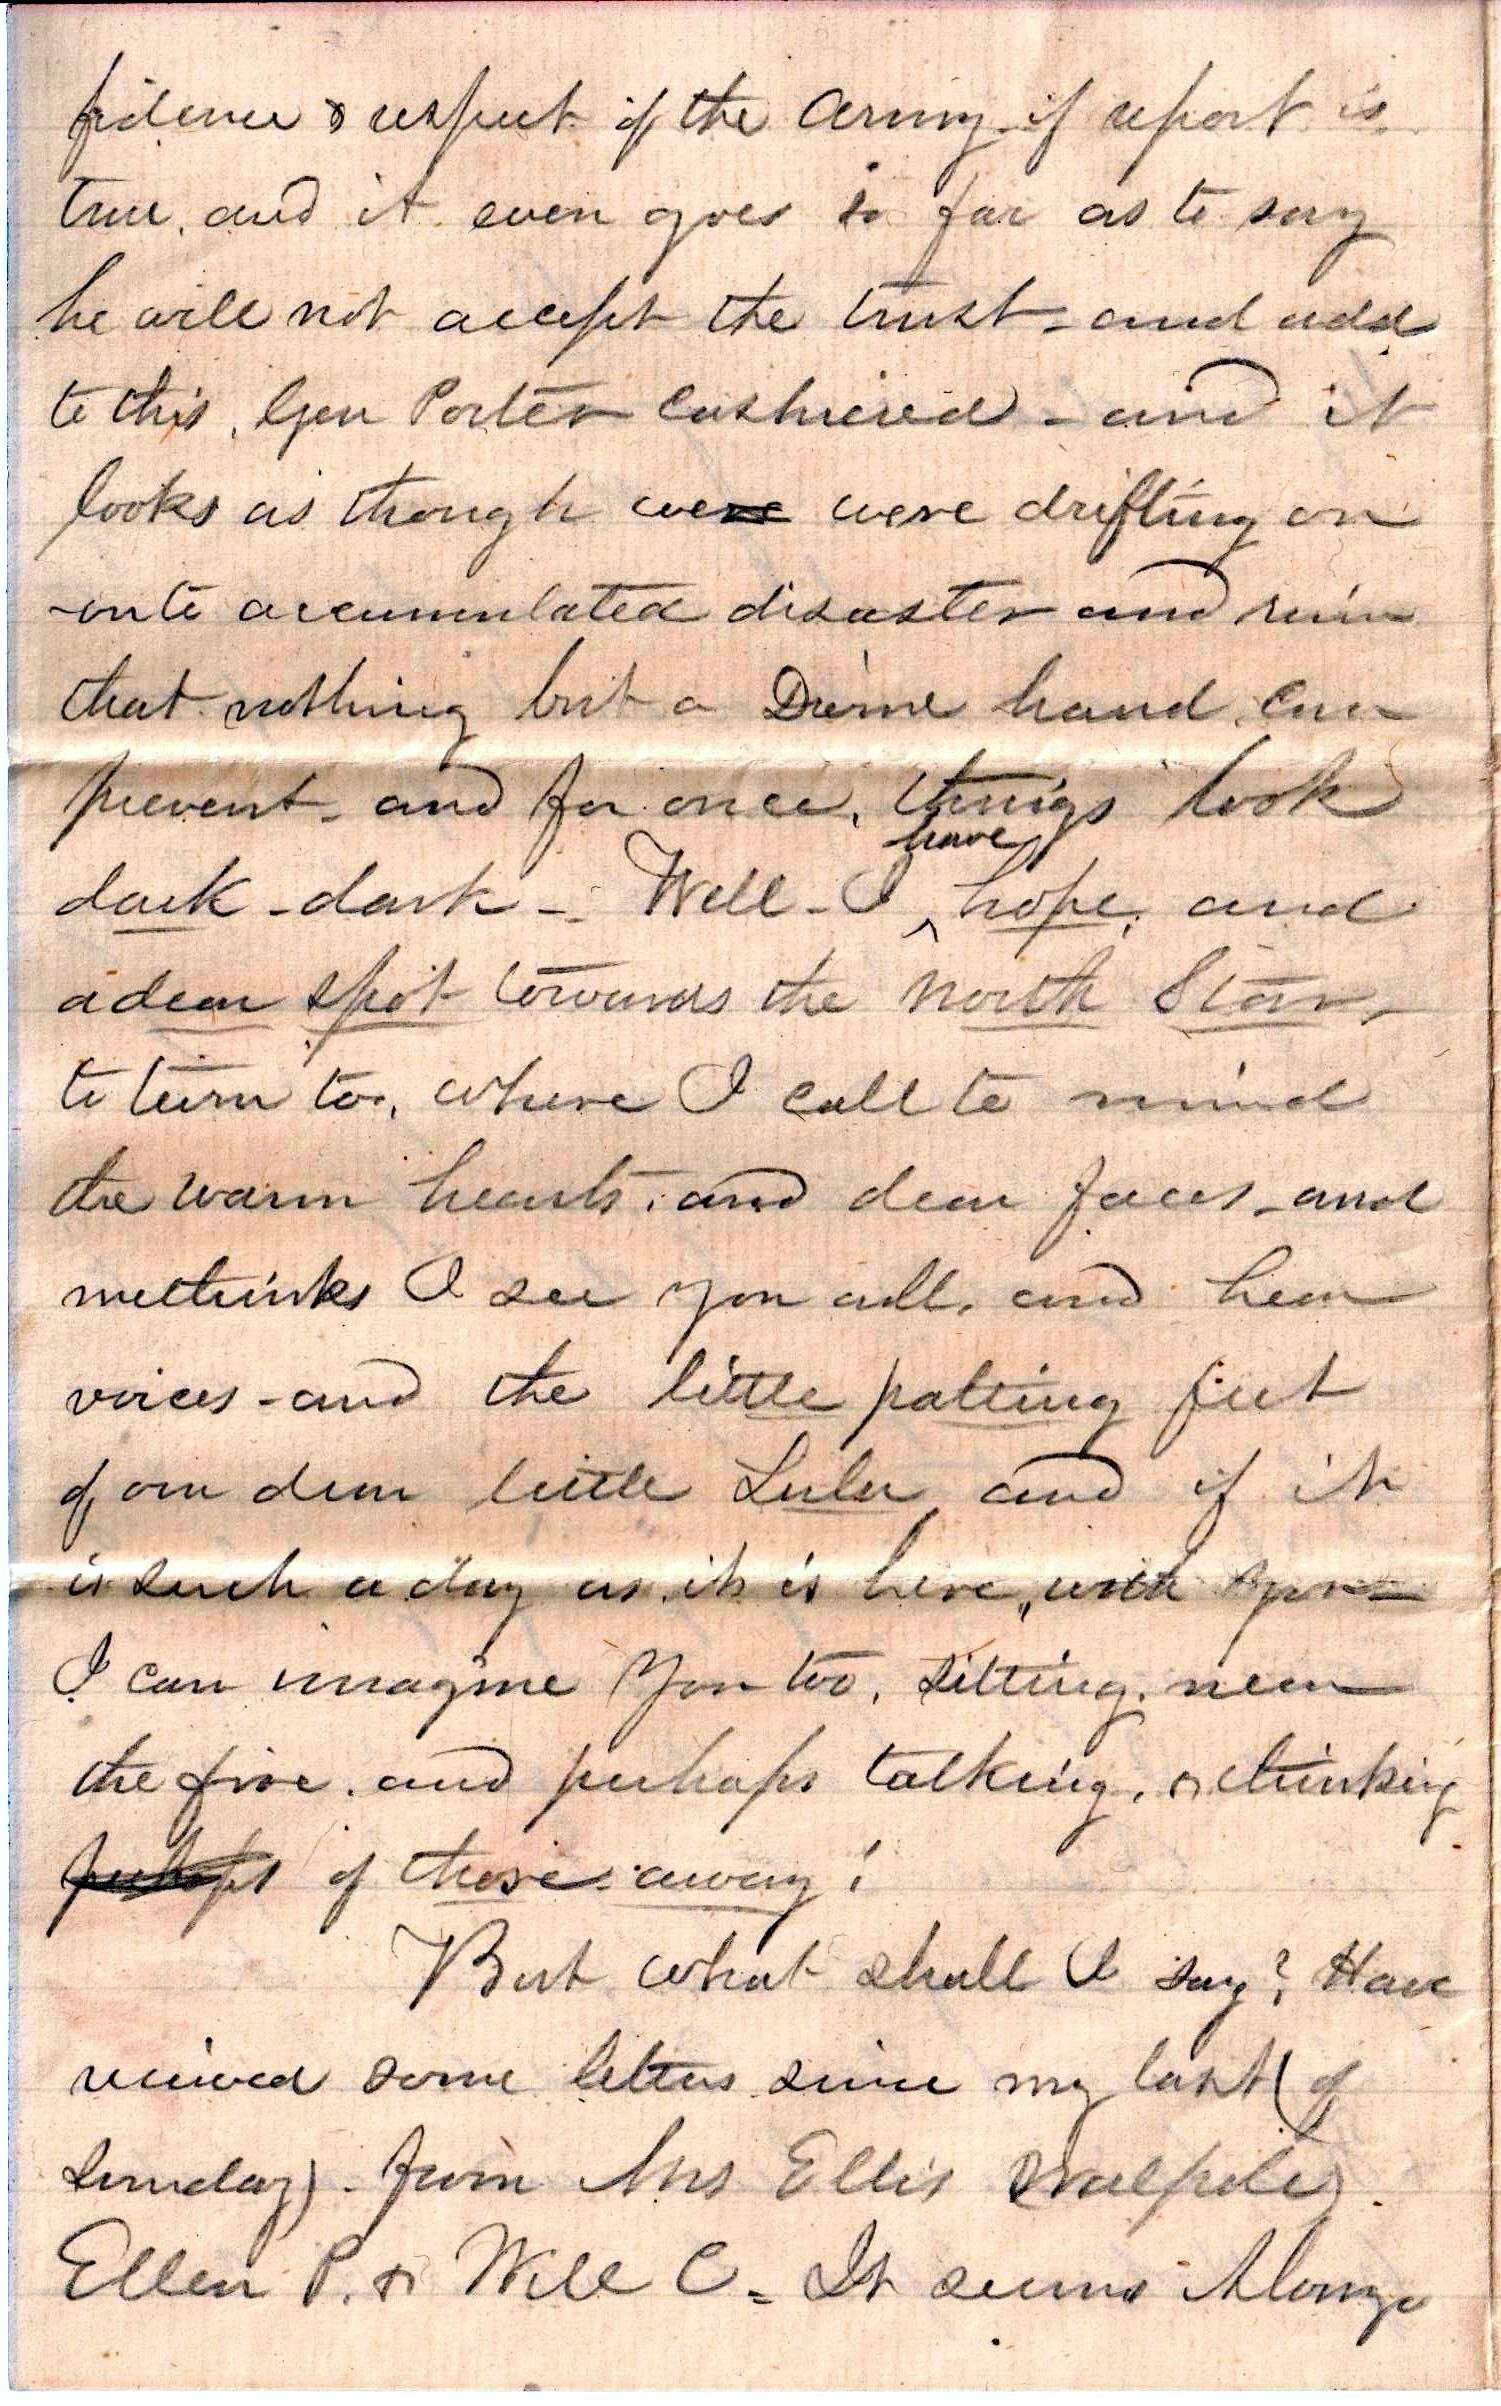 fidence & respect of the Army - if report is
true, and it even goes so far as to say
he will not accept the trust - and add
to this, Gen Porter cashiered - and it
looks as though were were drifting on
-onto accumulated disaster and ruin
that nothing but a Divine hand can
prevent - and for once, things look
dark - dark - Well - I have hope, and
a dear spot towards the North Star,
to turn to, where I call to mind
the warm hearts, and dear faces - and
methinks I see you all, and hear
voices - and the little patting feet
of our dear little Lulu, and if it
is such a day as it is here, with you -
I can imagine you too, sitting near
the fire, and perhaps talking, & thinking
perhaps of those away!
But what shall I say? Have
recieved some letters since my last (of
Sunday) - from Mrs Ellis (Walpole)
Ellen P. & Will C - It seems Alonzo